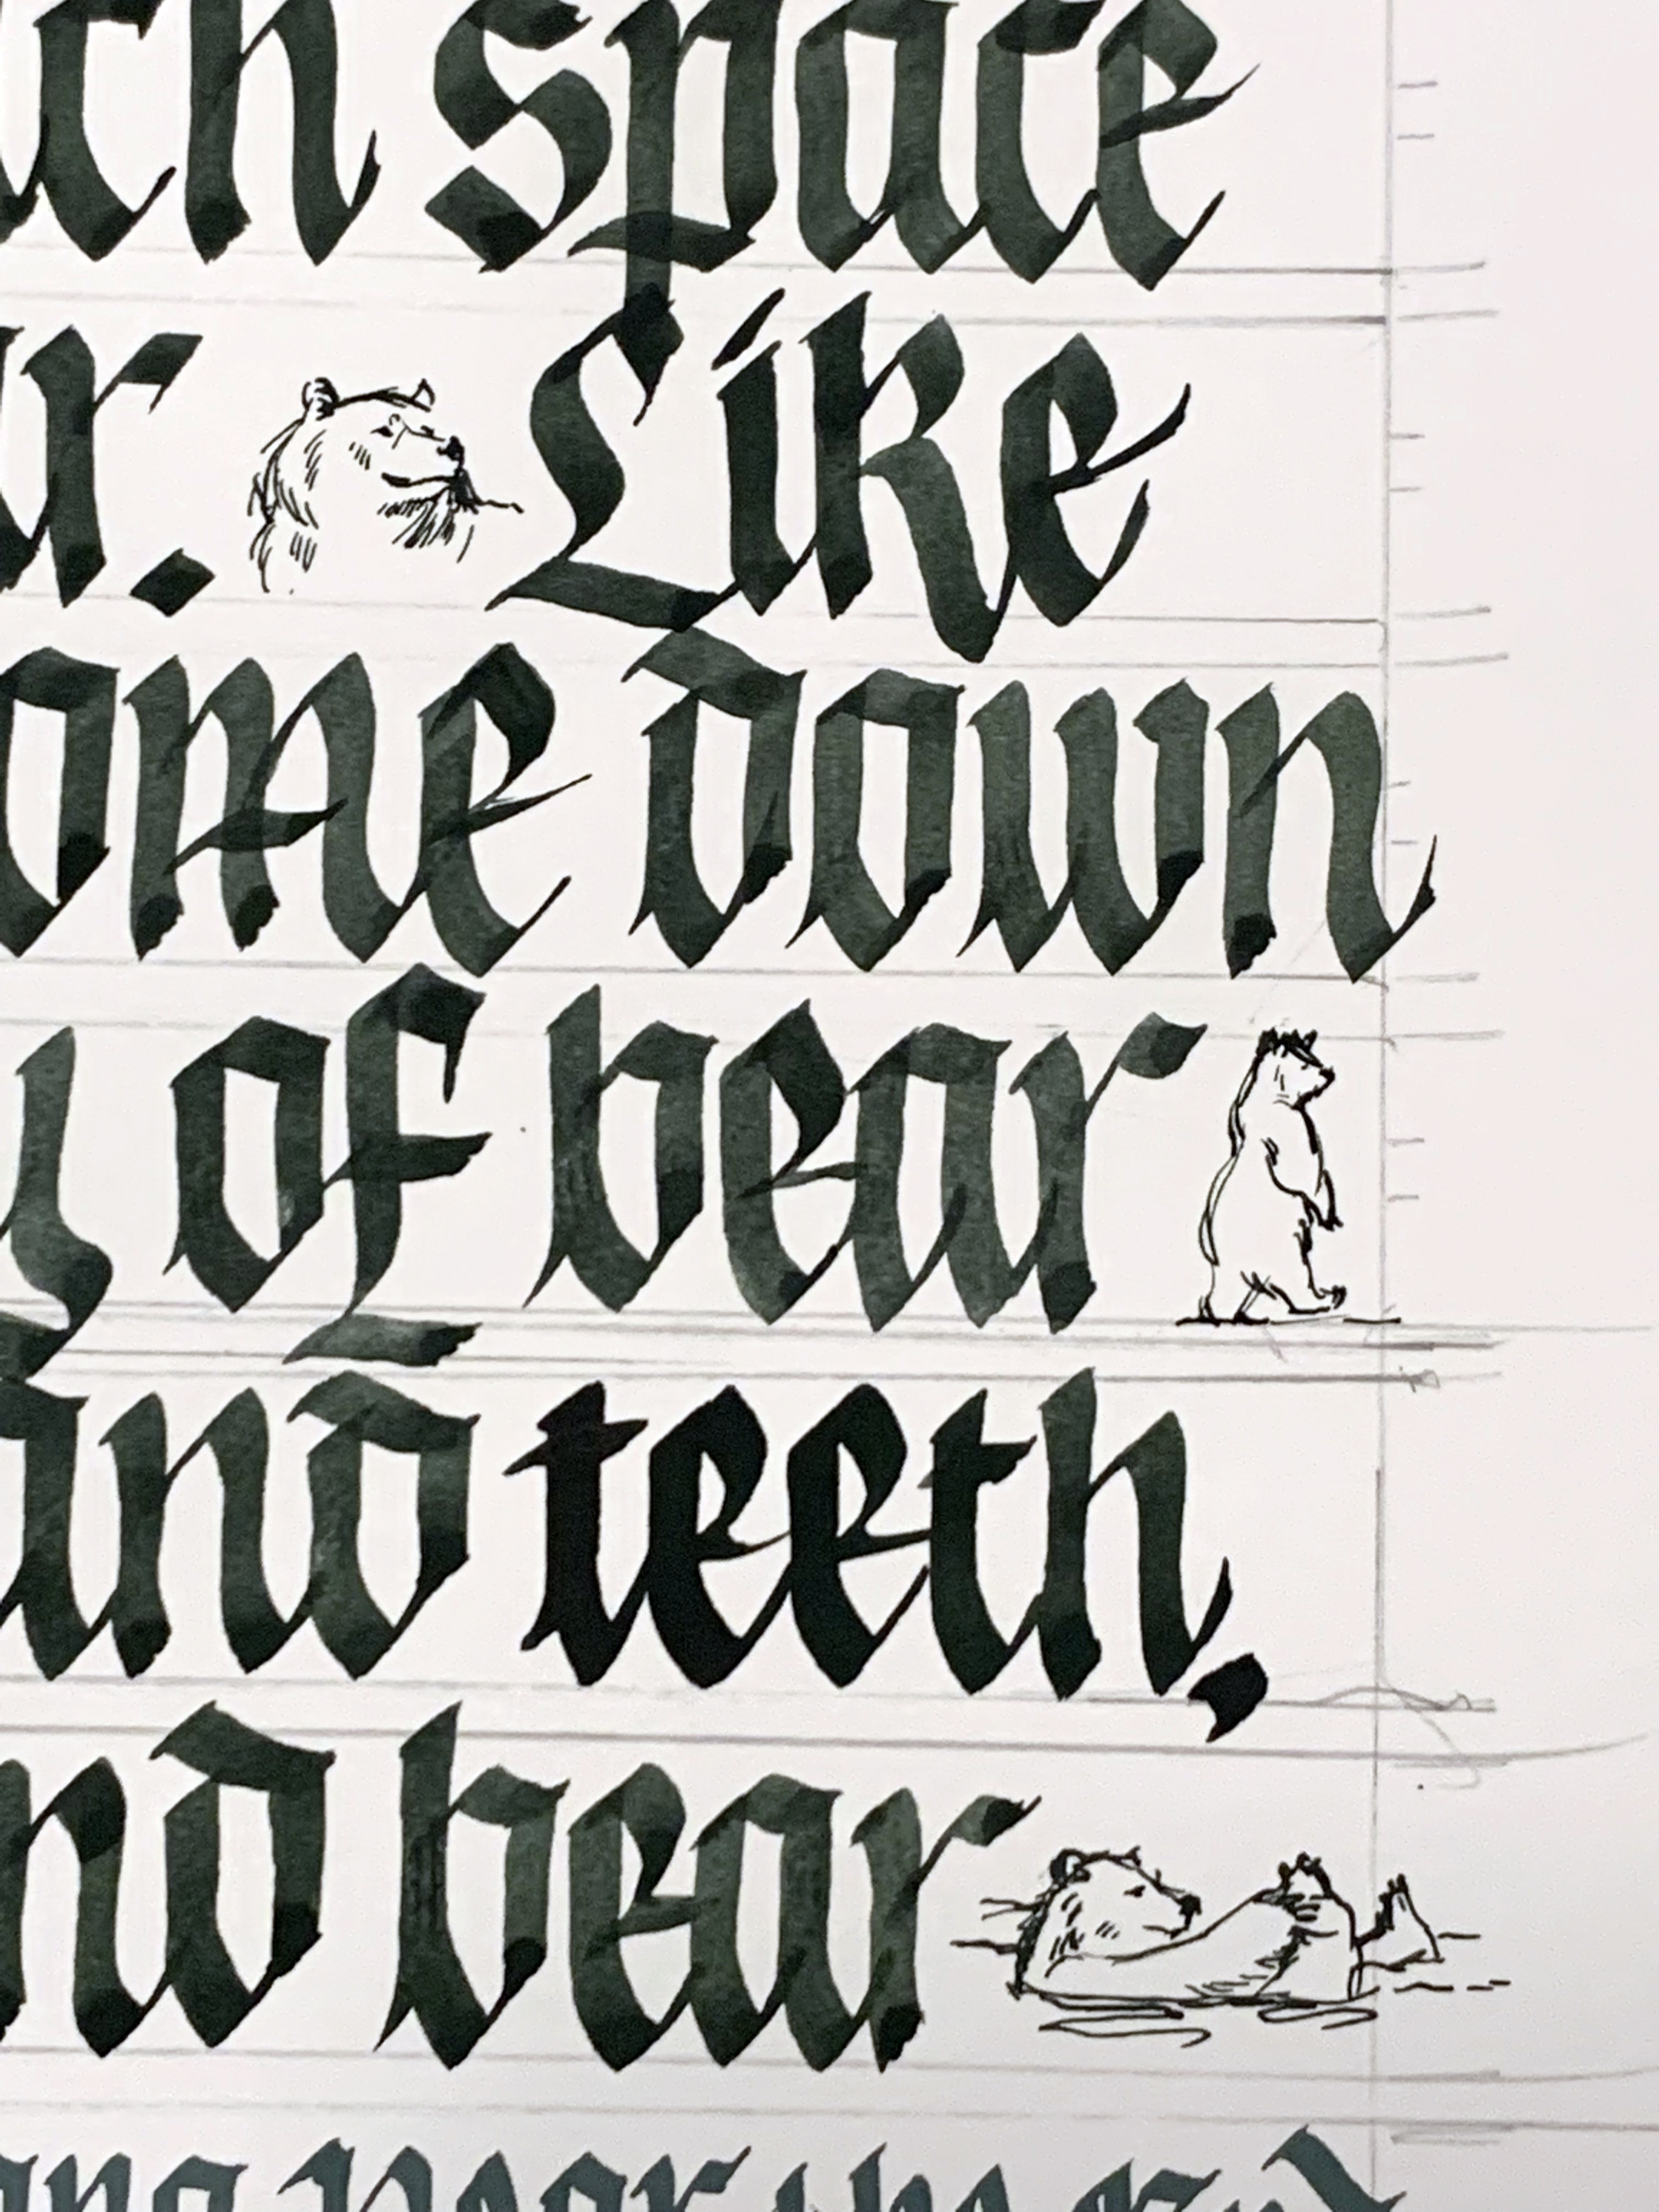 ch space
r. Like
ome down
y of bear
and teeth,
nd bear
near the end